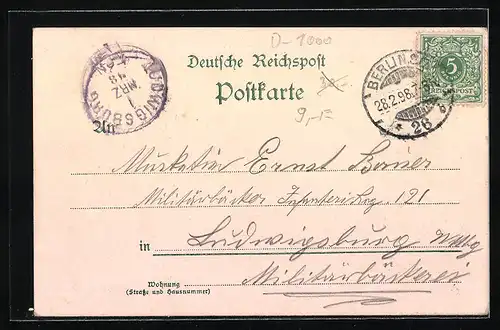 D-1000
Deutsche Reichspost
Postkarte
9,-
LUDWIGSBURG
1
MRZ
98
BERLIN, S.
28.2.98.
* 26
5
REICHSPOST
An
Musketier Ernst Bauer
Militärbäcker Infanterie Reg. 121
in Ludwigsburg Wttbg
Militärbäckerei
Wohnung
(Straße und Hausnummer)